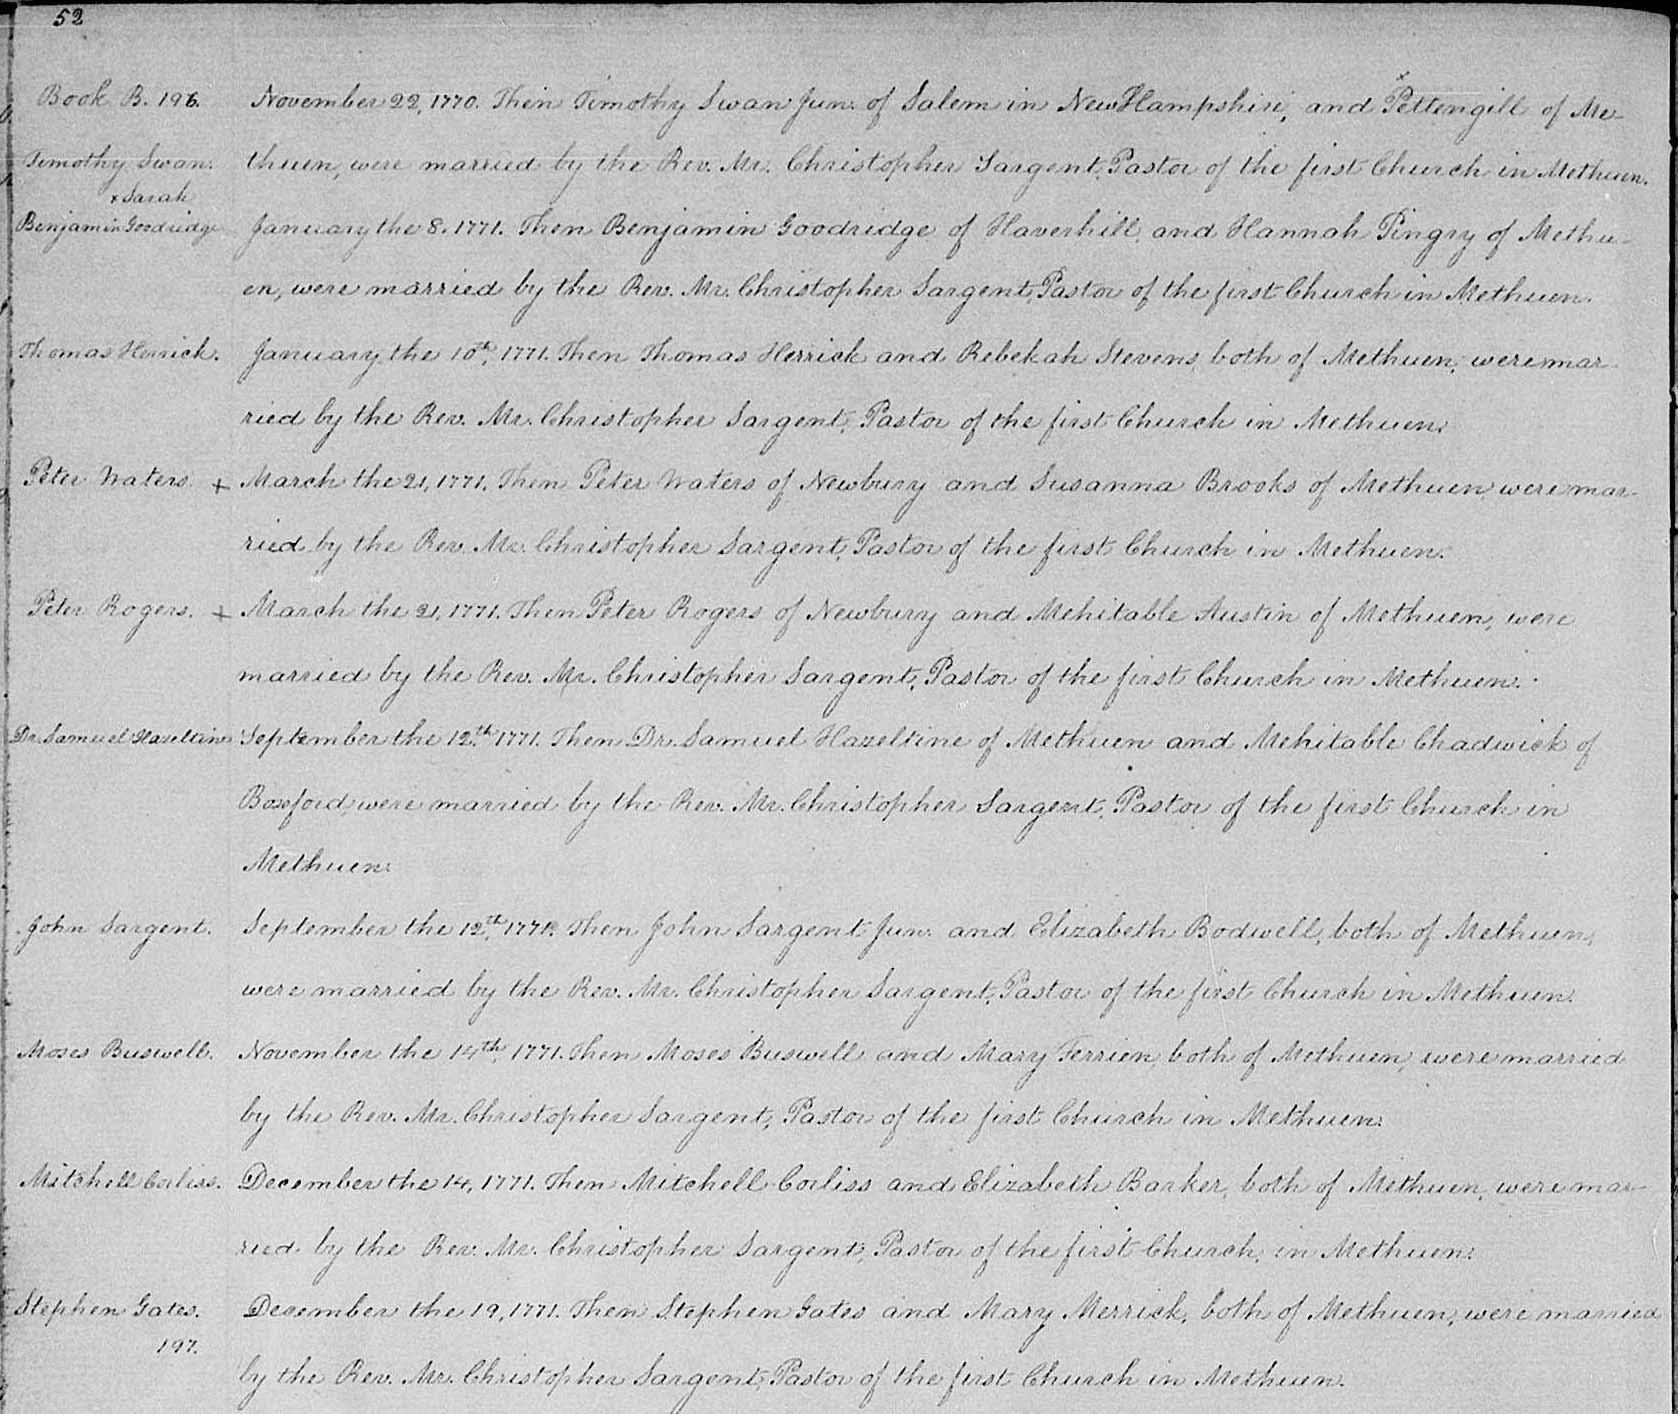 52
Book B. 196.
November 22, 1770. Then Timothy Swan Jun. of Salem in New Hampshire, and × Pettengill of Me-
Timothy Swan.
thuen, were married by the Rev. Mr. Christopher Sargent, Pastor of the first Church in Methuen.
× Sarah
Benjamin Goodridge
January the 8. 1771. Then Benjamin Goodridge of Haverhill, and Hannah Pingry of Methu-
en, were married by the Rev. Mr. Christopher Sargent, Pastor of the first Church in Methuen.
Thomas Herrick.
January the 10th, 1771. Then Thomas Herrick and Rebekah Stevens, both of Methuen, were mar-
ried by the Rev. Mr. Christopher Sargent, Pastor of the first Church in Methuen.
Peter Waters. +
March the 21, 1771. Then Peter Waters of Newbury and Susanna Brooks of Methuen, were mar-
ried by the Rev. Mr. Christopher Sargent, Pastor of the first Church in Methuen.
Peter Rogers. +
March the 21, 1771. Then Peter Rogers of Newbury and Mehitable Austin of Methuen, were
married by the Rev. Mr. Christopher Sargent, Pastor of the first Church in Methuen.
Dr. Samuel Hazeltine
September the 12th 1771. Then Dr. Samuel Hazeltine of Methuen and Mehitable Chadwick of
Boxford, were married by the Rev. Mr. Christopher Sargent, Pastor of the first Church in
Methuen.
John Sargent.
September the 12th, 1771. Then John Sargent Jun. and Elizabeth Bodwell, both of Methuen,
were married by the Rev. Mr. Christopher Sargent, Pastor of the first Church in Methuen.
Moses Buswell.
November the 14th, 1771. Then Moses Buswell and Mary Terrien, both of Methuen, were married
by the Rev. Mr. Christopher Sargent, Pastor of the first Church in Methuen.
Mitchell Corliss.
December the 14, 1771. Then Mitchell Corliss and Elizabeth Barker, both of Methuen, were mar-
ried by the Rev. Mr. Christopher Sargent, Pastor of the first Church, in Methuen.
Stephen Gates.
December the 19, 1771. Then Stephen Gates and Mary Merrick, both of Methuen, were married
197.
by the Rev. Mr. Christopher Sargent, Pastor of the first Church in Methuen.